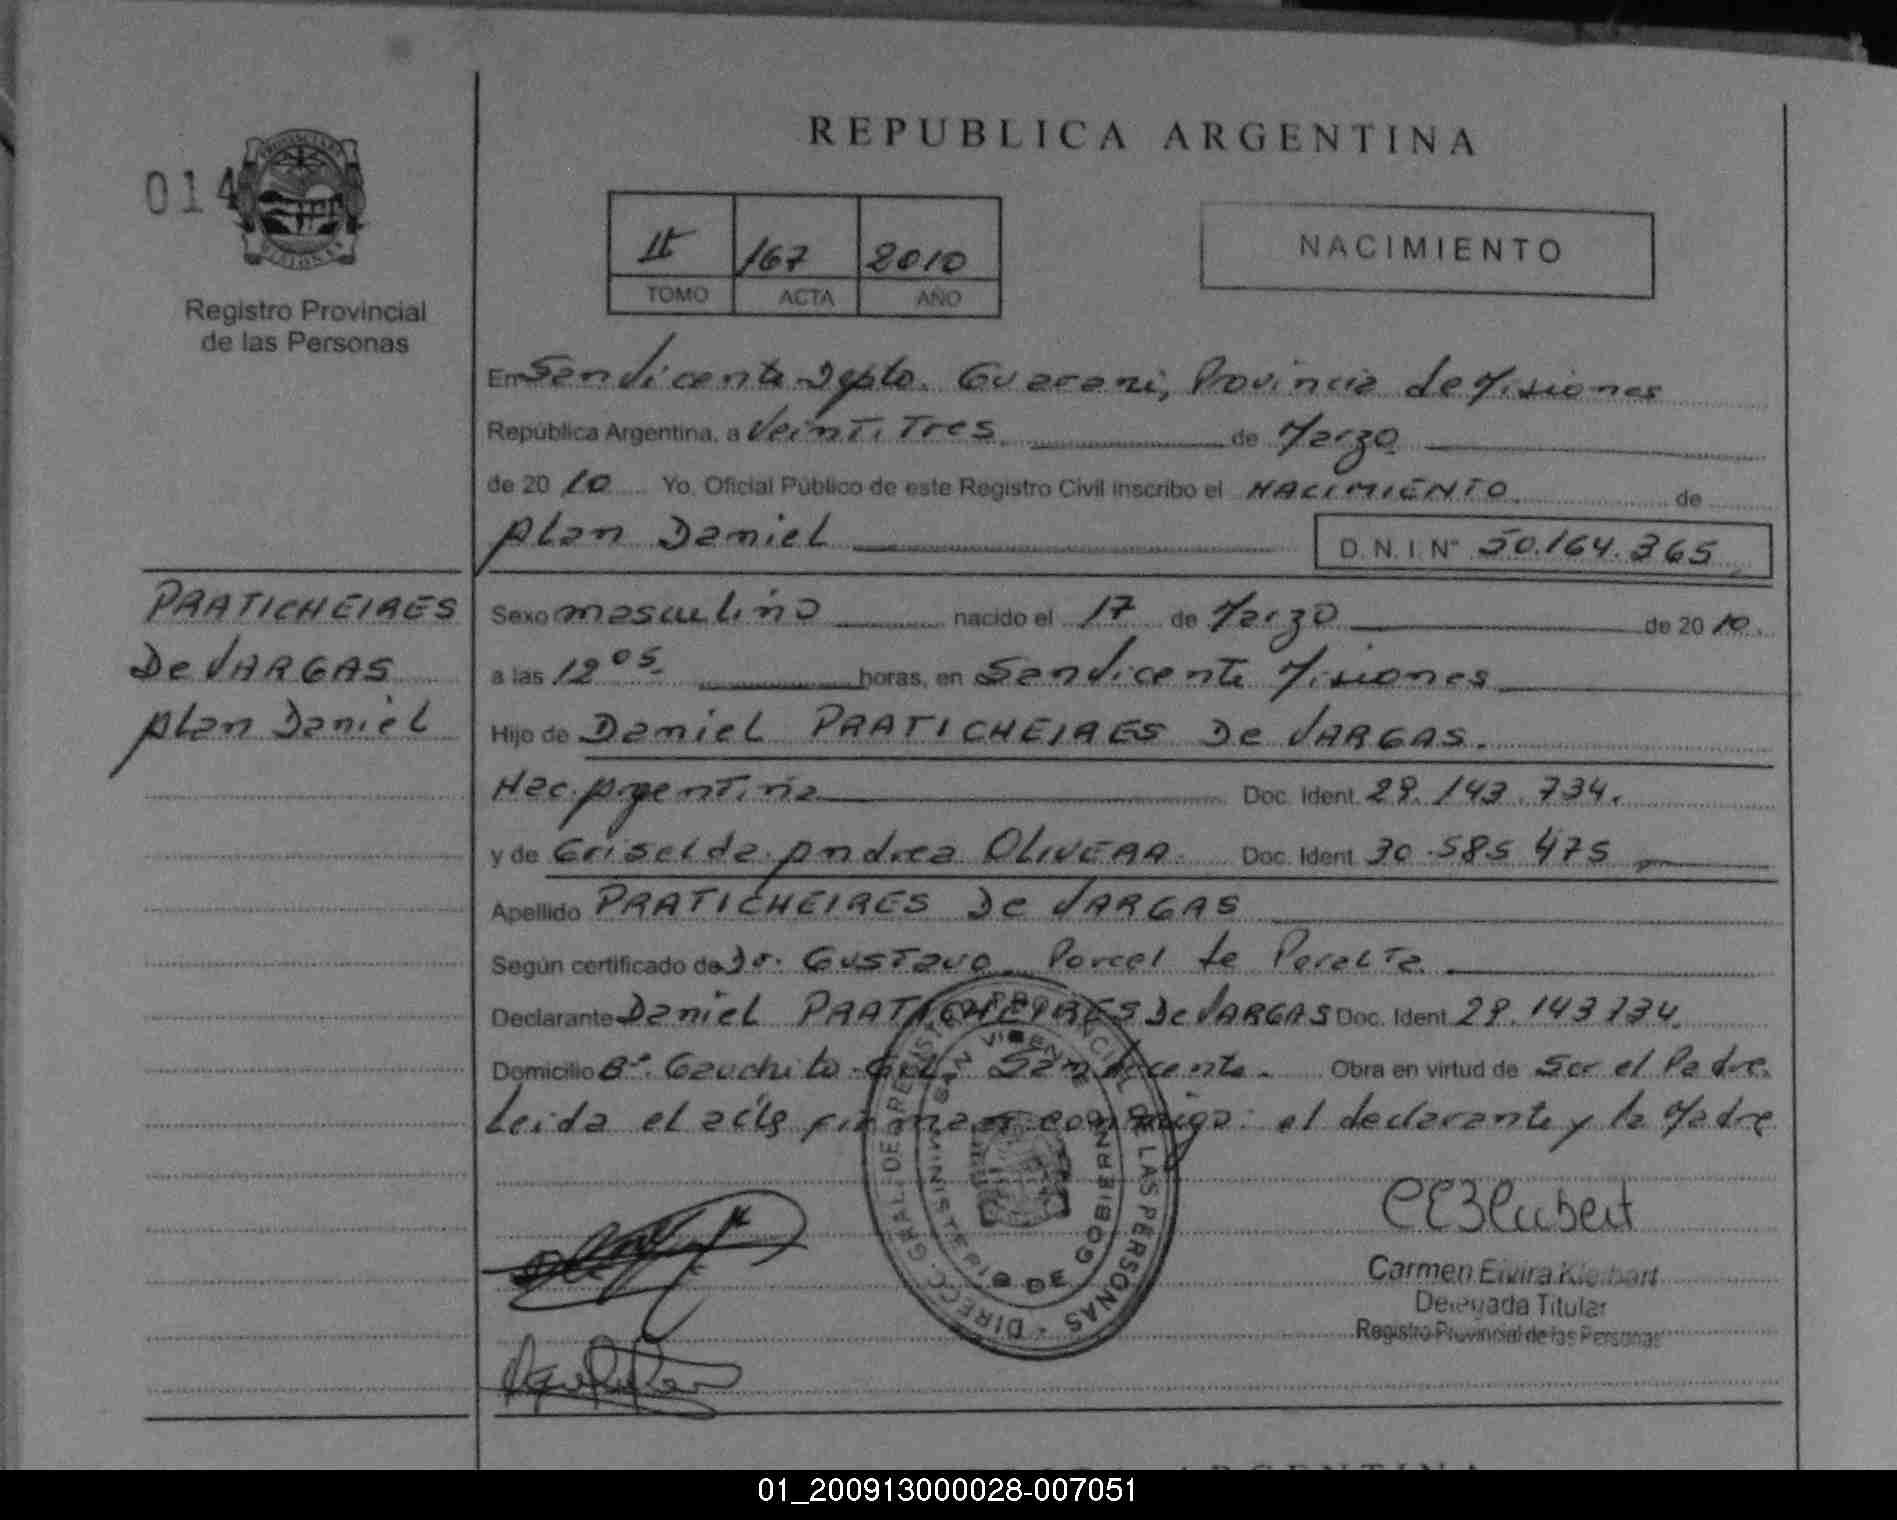 REPUBLICA ARGENTINA
014
PROVINCIA DE MISIONES
Registro Provincial
de las Personas
II 167 2010
TOMO ACTA AÑO
NACIMIENTO
En San Vicente Dpto. Guarani, Provincia de Misiones
República Argentina, a Veinti Tres de Marzo
de 20 10 Yo, Oficial Público de este Registro Civil inscribo el NACIMIENTO de
Alan Daniel D. N. I. N° 50.164.365
PRATICHEIRES
De VARGAS
Alan Daniel
Sexo masculino nacido el 17 de Marzo de 20 10.
a las 12 05 horas, en San Vicente Misiones
Hijo de Daniel PRATICHEIRES De VARGAS.
Nac. Argentina Doc. Ident. 29.143.734.
y de Griselda Andrea OLIVERA. Doc. Ident. 30.585.475
Apellido PRATICHEIRES De VARGAS
Según certificado de Dr. Gustavo Porcel de Peralta
Declarante Daniel PRATICHEIRES De VARGAS Doc. Ident. 29.143.734.
Domicilio B°. Gauchito Gil. San Vicente. Obra en virtud de Ser el Padre.
Leida el acta firman conmigo: el declarante y la Madre
DIRECC. GRAL. DE REGISTRO PROVINCIAL DE LAS PERSONAS
SAN VICENTE
MINISTERIO DE GOBIERNO
Carmen Elvira Kleibert
Delegada Titular
Registro Provincial de las Personas
01_200913000028-007051